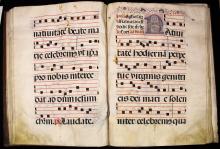 natiuitate beate ma
rie celebremus ut ipa
pro nobis interce
dat ad
chrm. Laudate.
Atiui
tate hodierna perpe
tue uirginis geniti
cis dei marie solen
niter celebremus qua